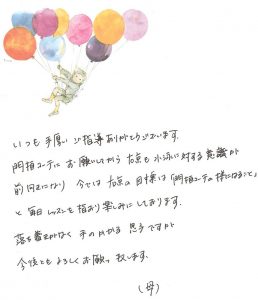 いつも 手厚い ご指導ありがとうございます。
門頭コーチに お願いしてから 右京も 水泳に対する 意識が
前向きになり 今では 右京の 目標は 「門頭コーチの様になること」
と 毎日 レッスンを 指おり 楽しみにしております。
落ち着きがなく 手のかかる 息子ですが
今後とも よろしく お願い 致します。
(母)